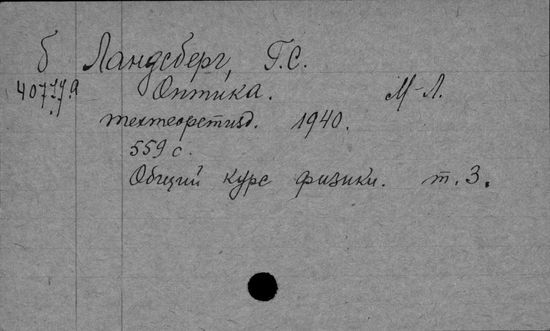 б Ландсберг, Г.С.
Оптика. М-Л.
техтеоретизд. 1940.
559 с.
Общий курс физики. т. 3.